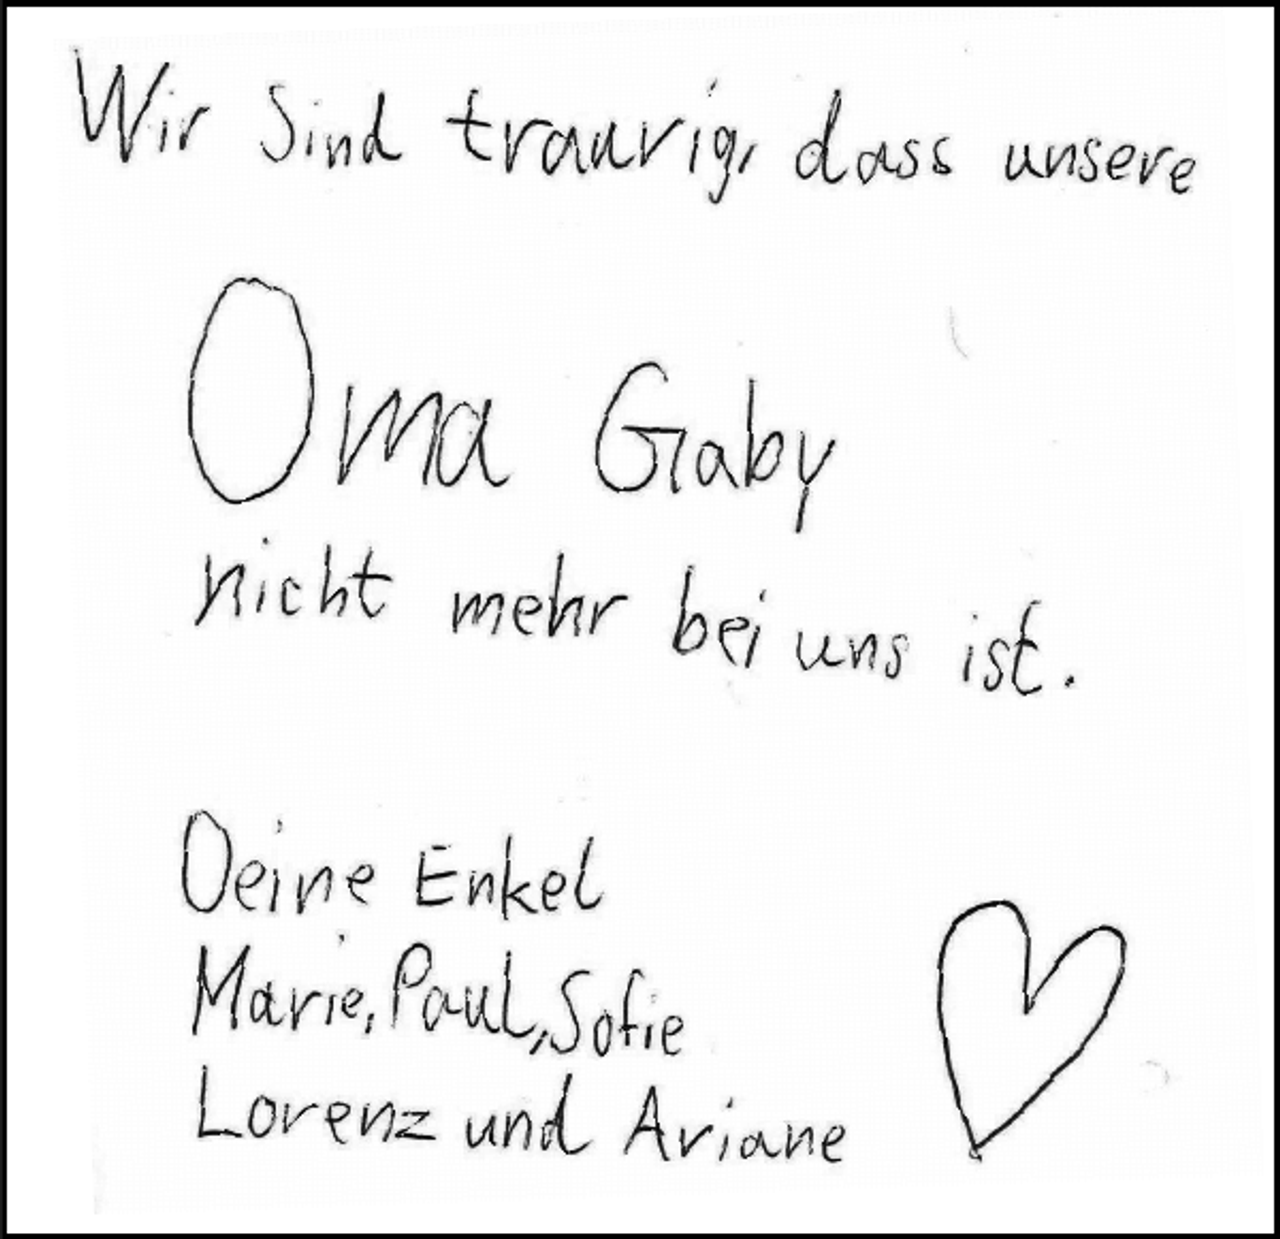 Wir sind traurig, dass unsere
Oma Gaby
nicht mehr bei uns ist.
Deine Enkel
Marie, Paul, Sofie
Lorenz und Ariane